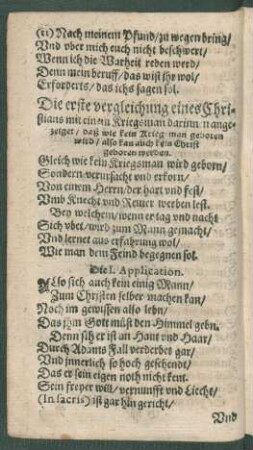 (ii) Nach moinem Pfund/ zu wegen bring/
Vnd vber mich euch nicht beschwert/
Wenn ich die Warheit reden werd/
Denn mein beruff/ das wist jhr wol/
Erforderts/ das ichs sagen sol.
Die erste vergleichung eines Chri-
stians mit einem Kriegsman darinn ange-
zeiget/ daß wie kein Krieg man geboren
wird/ also kan auch kein Christ
geboren werden.
Gleich wie kein Kriegsman wird geborn/
Sondern verursacht vnd erkorn/
Von einem Herrn/ der hart vnd fest/
Vmb Knecht vnd Reuter werben lest.
Bey welchem/ wenn er tag vnd nacht
Sich vbet/ wird zum Mann gemacht/
Vnd lernet aus erfahrung wol/
Wie man dem Feind begegnen sol.
Die I. Application.
Also sich auch kein einig Mann/
Zum Christen selber machen kan/
Noch im gewissen also lebn/
Das jhm Gott müst den Himmel gebn.
Denn sih er ist an Haut vnd Haar/
Durch Adams Fall verderbet gar/
Vnd innerlich so hoch geschendt/
Das er sein eigen noth nicht kent.
Sein freyer will/ vernunfft vnd Liecht/
(In sacris) ist gar hin gericht/
Vnd